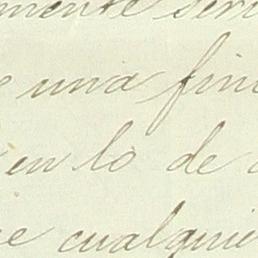 mente seri
una fin
en lo de
e cualquie